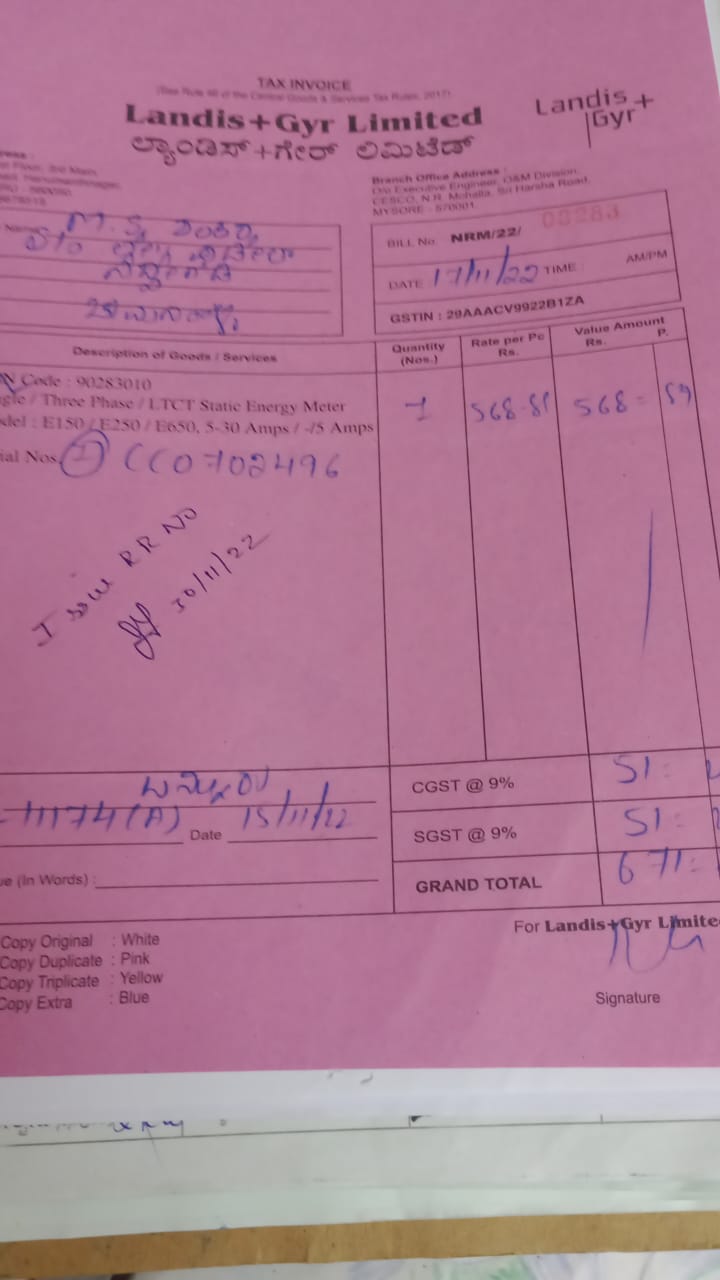 TAX INVOICE
(See Rule 46 of the Central Goods & Services Tax Rules, 2017)
Landis+Gyr Limited
ಲ್ಯಾಂಡಿಸ್+ಗೇರ್ ಲಿಮಿಟೆಡ್
Landis+
Gyr+
Branch Office Address :
O/o Executive Engineer, O&M Division,
CESCO, N.R. Mohalla, Sri Harsha Road,
MYSORE - 570001.
BILL No. NRM/22/ 00283
DATE : 17/11/22 TIME : AM/PM
GSTIN : 29AAACV9922B1ZA
Description of Goods / Services
Quantity (Nos.)
Rate per Pc Rs.
Value Amount Rs. P.
Code : 90283010
/ Three Phase / LTCT Static Energy Meter
: E150 / E250 / E650, 5-30 Amps / -/5 Amps
1 568-81 568=
Nos. 1 CC0702496
Issue RR NO
30/11/22
11174(A) Date 15/11/22
CGST @ 9% 51=
SGST @ 9% 51=
(In Words) :
GRAND TOTAL 671=
For Landis+Gyr Limite
Copy Original : White
Copy Duplicate : Pink
Copy Triplicate : Yellow
Copy Extra : Blue
Signature